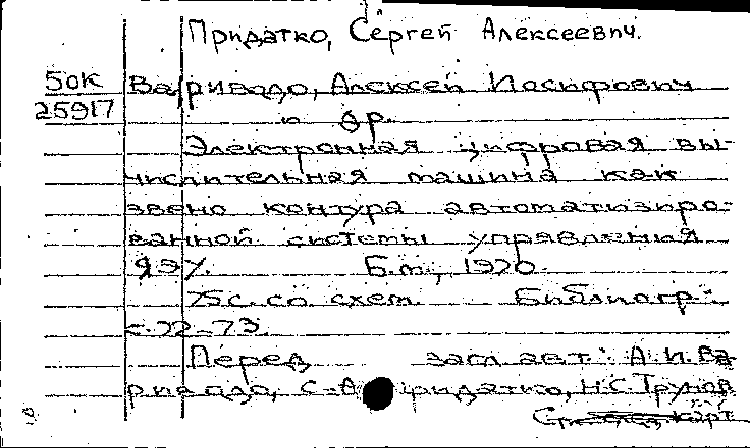 Придатко, Сергей Алексеевич.
50К Варивода, Алексей Иосифович
25917 и др.
Электронная цифровая вы-
числительная машина как
звено контура автоматизиро-
ванной системы управления
ЯЭУ. Б.м., 1970.
75с. со схем. Библиогр.:
с. 72-73.
Перед загл. авт.: А.И.Ва-
ривода, С.А. Придатко, Н.С.Трунов
карт